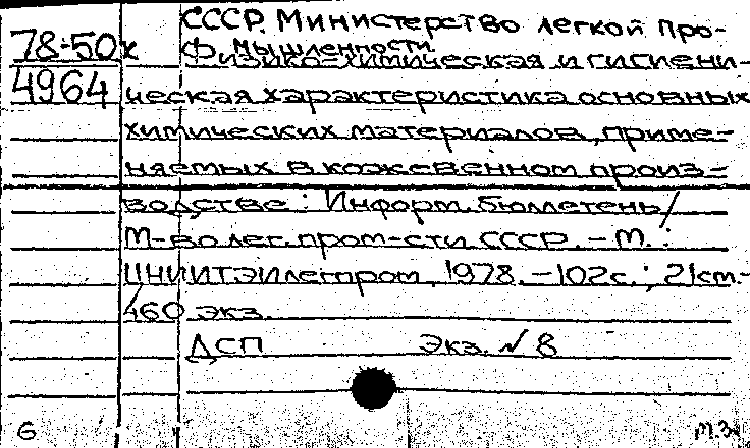 СССР. Министерство легкой про-
78-50к мышленности.
Физико-химическая и гигиени-
4964 ческая характеристика основных
химических материалов, приме-
няемых в кожевенном произ-
водстве: Информ. бюллетень/
М-во лег. пром-сти СССР. - М.:
ЦНИИТЭИлегпром, 1978. - 102с.; 21см.-
460 экз.
ДСП Экз. № 8
6 т.з.